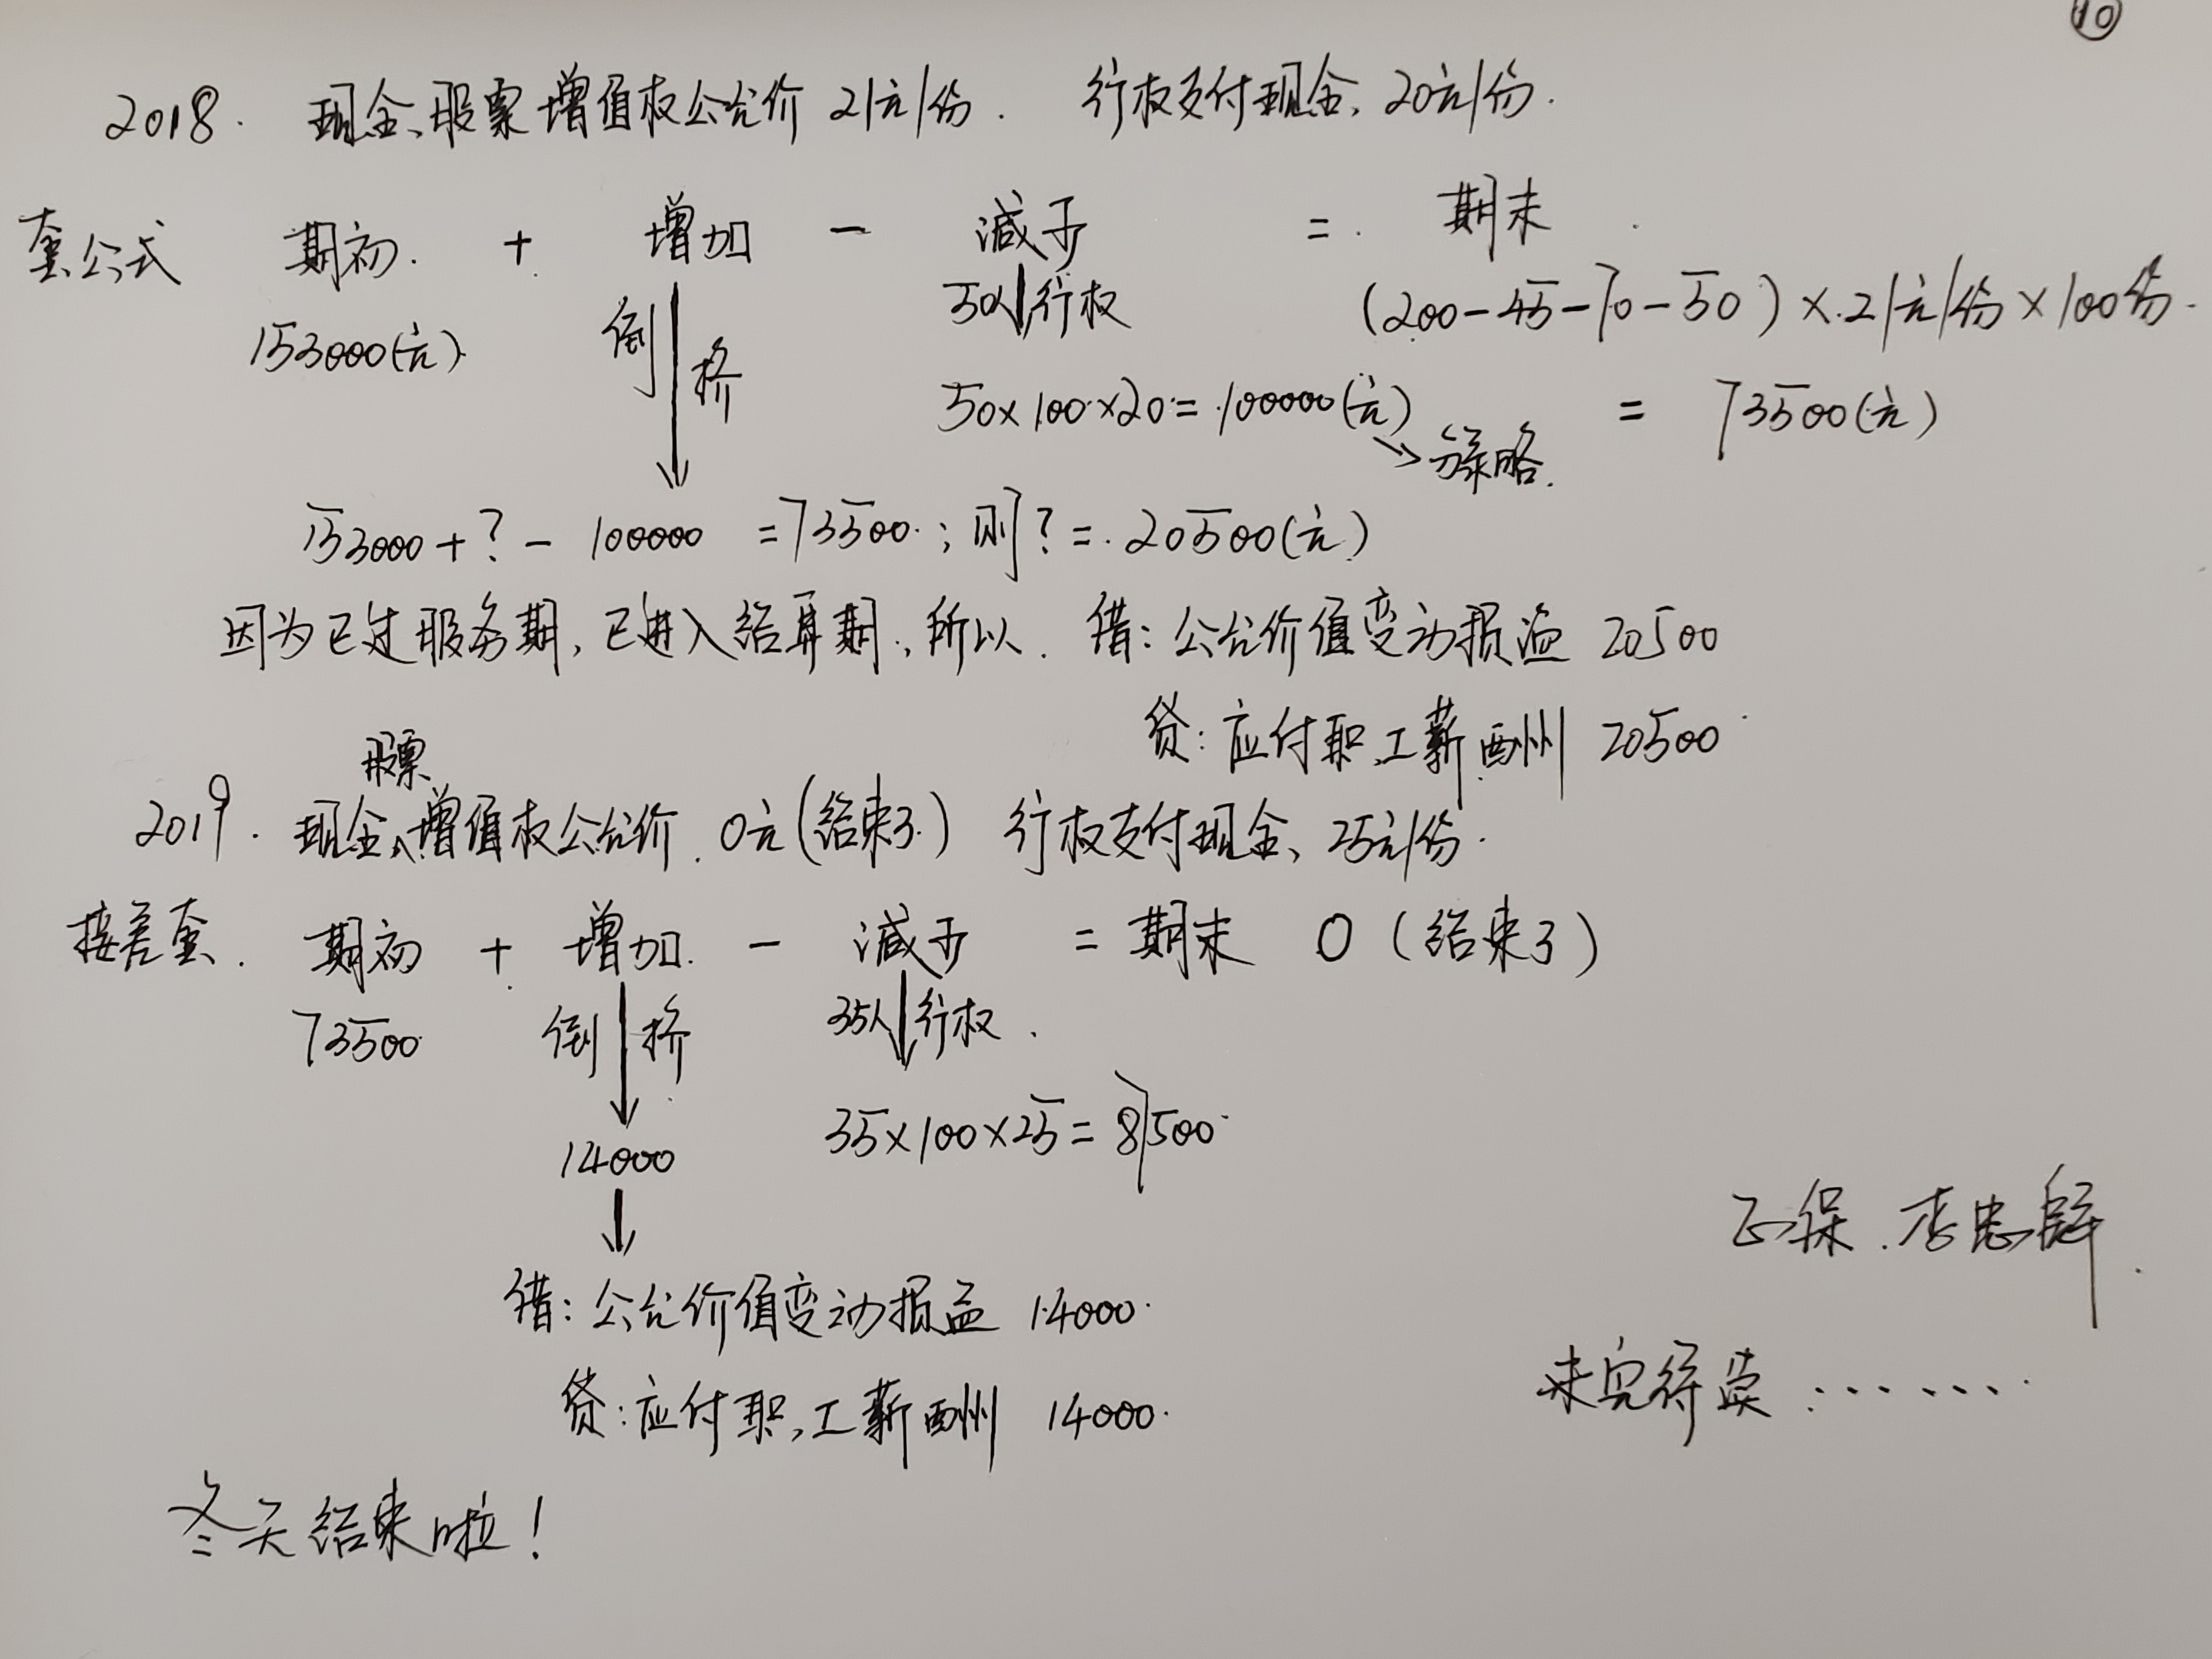 ⑩
2018. 现金、股票增值权公允价 21元/份. 行权支付现金, 20元/份.
套公式 期初 + 增加 - 减少 = 期末
153000(元) 倒挤 50人行权 (200-45-70-50)×21元/份×100份.
50×100×20=100000(元) = 73500(元)
分录略.
153000+?-100000=73500; 则?=20500(元)
因为已过服务期, 已进入结算期, 所以. 借: 公允价值变动损益 20500
贷: 应付职工薪酬 20500
股票
2019. 现金、增值权公允价. 0元(结束了) 行权支付现金、25元/份.
接着套. 期初 + 增加 - 减少 = 期末 0 (结束了)
73500 倒挤 35人行权.
14000 35×100×25=87500
借: 公允价值变动损益 14000
贷: 应付职工薪酬 14000
正保. 李忠魁
未完待续……
冬天结束啦!